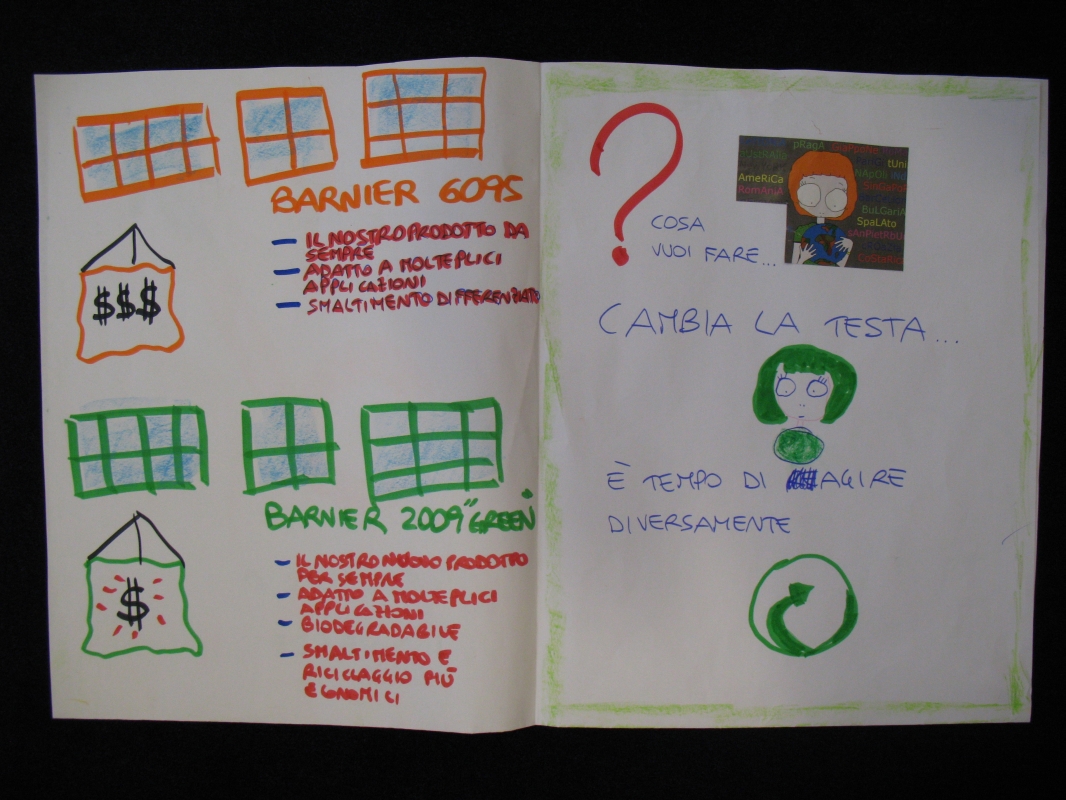 BARNIER 6095
- IL NOSTRO PRODOTTO DA
SEMPRE
- ADATTO A MOLTEPLICI
APPLICAZIONI
- SMALTIMENTO DIFFERENZIATO
$$$
BARNIER 2009 "GREEN"
- IL NOSTRO NUOVO PRODOTTO
PER SEMPRE
- ADATTO A MOLTEPLICI
APPLICAZIONI
- BIODEGRADABILE
- SMALTIMENTO E
RICICLAGGIO PIÙ
ECONOMICI
$
?
COSA
VUOI FARE...
pRagA
tUni
AmeRiCa
NApOli
RomAniA
SinGaPoR
BuLGariA
SpaLAto
sAnPietRbU
CoStaRic
CAMBIA LA TESTA...
È TEMPO DI AGIRE
DIVERSAMENTE